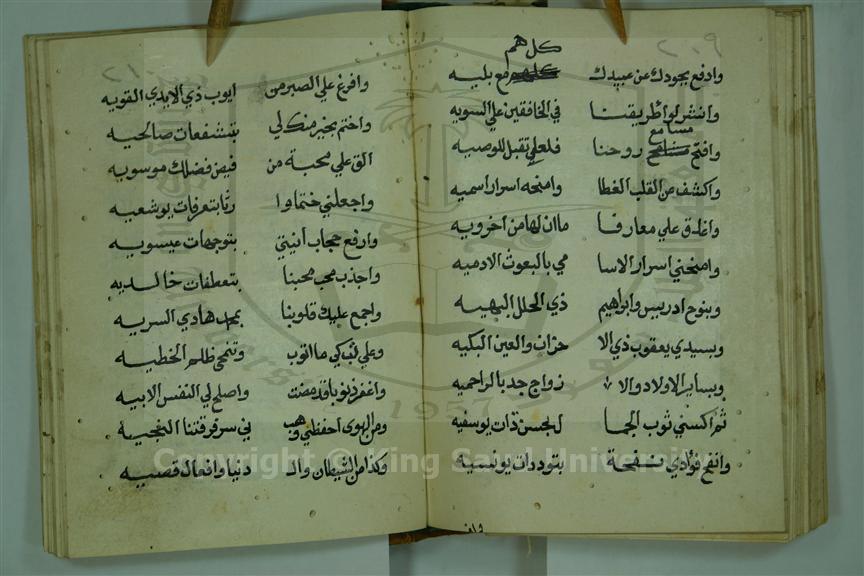 ٢٠٩
كل هم
وادفع بجودك عن عبيدك كل هم مع بليه
وانشر لواطريقتنا في الخافقين علي السويه
مسامع
وافتح مسامح روحنا فلعلي تقبل للوصيه
واكشف من القلب الغطا وامنحه اسرار اسميه
واغدق علي معارفا ماان لها من اخرويه
وامنحني اسرار الاسا مي بالبعوث الادميه
وبنوح ادريس وابراهيم ذي الحلل البهيه
وبسيدي يعقوب ذي الا حزان والعين البكيه
وبساير الاولاد والا زواج جد بالراحميه
ثم اكسني ثوب الجما لبحسن ذات يوسفيه
وانفح فؤادي نفحة بتوددات يونسيه
وافر
وافرغ علي الصبر من ايوب ذي الايدي القويه
واختم بخير منك لي بتشفعات صالحيه
الق علي محبة من فيض فضلك موسويه
واجعلني ختماوا رثا بتعرفات يوشعيه
وارفع حجاب أنيتي بتوجهات عيسويه
واجذب محب محبنا بتعطفات خالديه
واجمع عليك قلوبنا بمحمد هادي السريه
وعلي تب كي ما اتوب وتنمحي ظلم الخطيه
واغفر ذنوبا قد مضت واصلح لي النفس الابيه
ومن الهوي احفظني وهب ني سر فرقتنا النجيه
وكذا من الشيطان وال دنيا وافعال قصيه
Copyright © King Saud University
1957